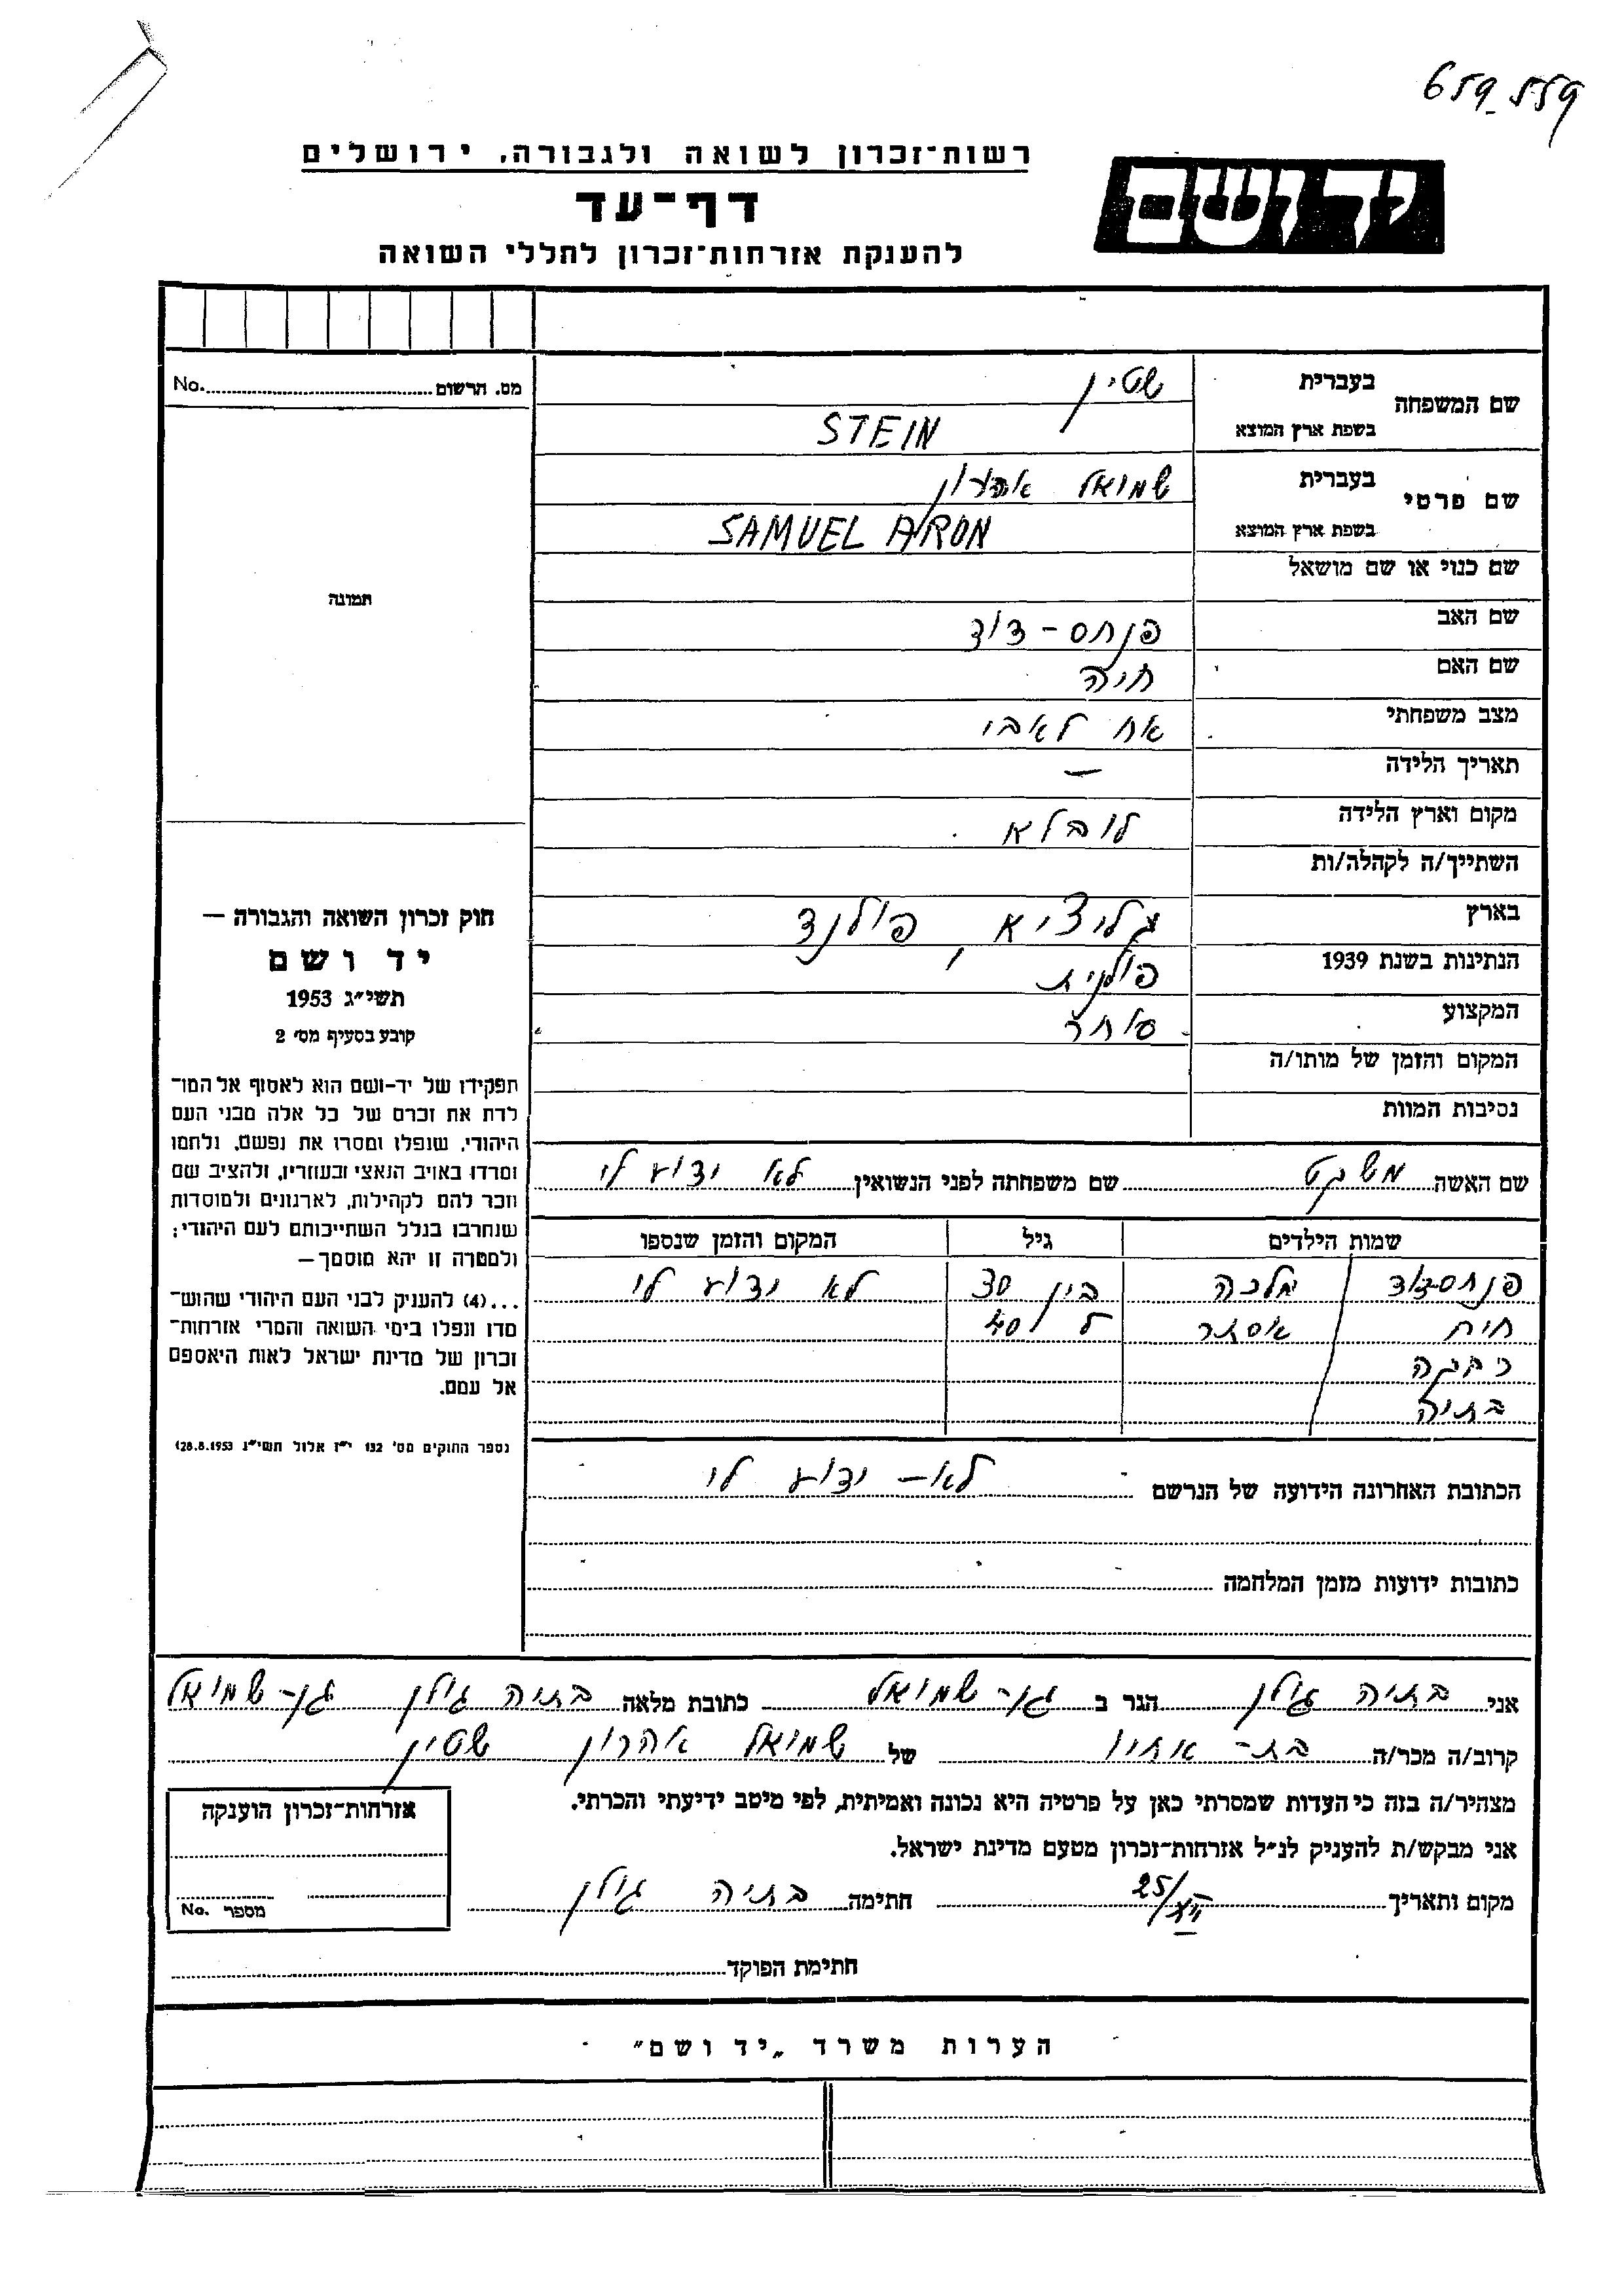 659_559
רשות־זכרון לשואה ולגבורה, ירושלים
יד ושם
דף־עד
להענקת אזרחות־זכרון לחללי השואה
מס. הרשום No.
תמונה
חוק זכרון השואה והגבורה —
יד ושם
תשי״ג 1953
קובע בסעיף מס׳ 2
תפקידו של יד-ושם הוא לאסוף אל המו־
לדת את זכרם של כל אלה מבני העם
היהודי, שנפלו ומסרו את נפשם, נלחמו
ומרדו באויב הנאצי ובעוזריו, ולהציב שם
וזכר להם לקהילות, לארגונים ולמוסדות
שנחרבו בגלל השתייכותם לעם היהודי;
ולמטרה זו יהא מוסמך —
...(4) להענק לבני העם היהודי שהוש־
מדו ונפלו בימי השואה והמרי אזרחות־
זכרון של מדינת ישראל לאות היאספם
אל עמם.
(ספר החוקים מס׳ 132 י״ז אלול תשי״ג 28.8.1953)
שם המשפחה בעברית שטיין
בשפת ארץ המוצא STEIN
שם פרטי בעברית שמואל אהרון
בשפת ארץ המוצא SAMUEL ARON
שם כנוי או שם מושאל
שם האב פנחס - דוד
שם האם חיה
מצב משפחתי אח לאבי
תאריך הלידה —
מקום וארץ הלידה לובלא
השתייך/ה לקהלה/ות
בארץ גליציא, פולנד
הנתינות בשנת 1939 פולנית
המקצוע סוחר
המקום והזמן של מותו/ה
נסיבות המוות
שם האשה שם משפחתה לפני הנשואין לא ידוע לי
שמות הילדים גיל המקום והזמן שנספו
פנחס-דוד / מלכה בין 30 לא ידוע לי
חית / אסתר ל 40
בתיה
הכתובת האחרונה הידועה של הנרשם לא - ידוע לי
כתובות ידועות מזמן המלחמה
אני בתיה גולן הגר ב גן-שמואל כתובת מלאה בתיה גולן גן-שמואל
קרוב/ה מכר/ה בת - אחיו של שמואל אהרון שטיין
מצהיר/ה בזה כי העדות שמסרתי כאן על פרטיה היא נכונה ואמיתית, לפי מיטב ידיעתי והכרתי.
אני מבקש/ת להעניק לנ״ל אזרחות־זכרון מטעם מדינת ישראל.
מקום ותאריך 25/ חתימה בתיה גולן
אזרחות־זכרון הוענקה
מספר No.
חתימת הפוקד
הערות משרד „יד ושם״